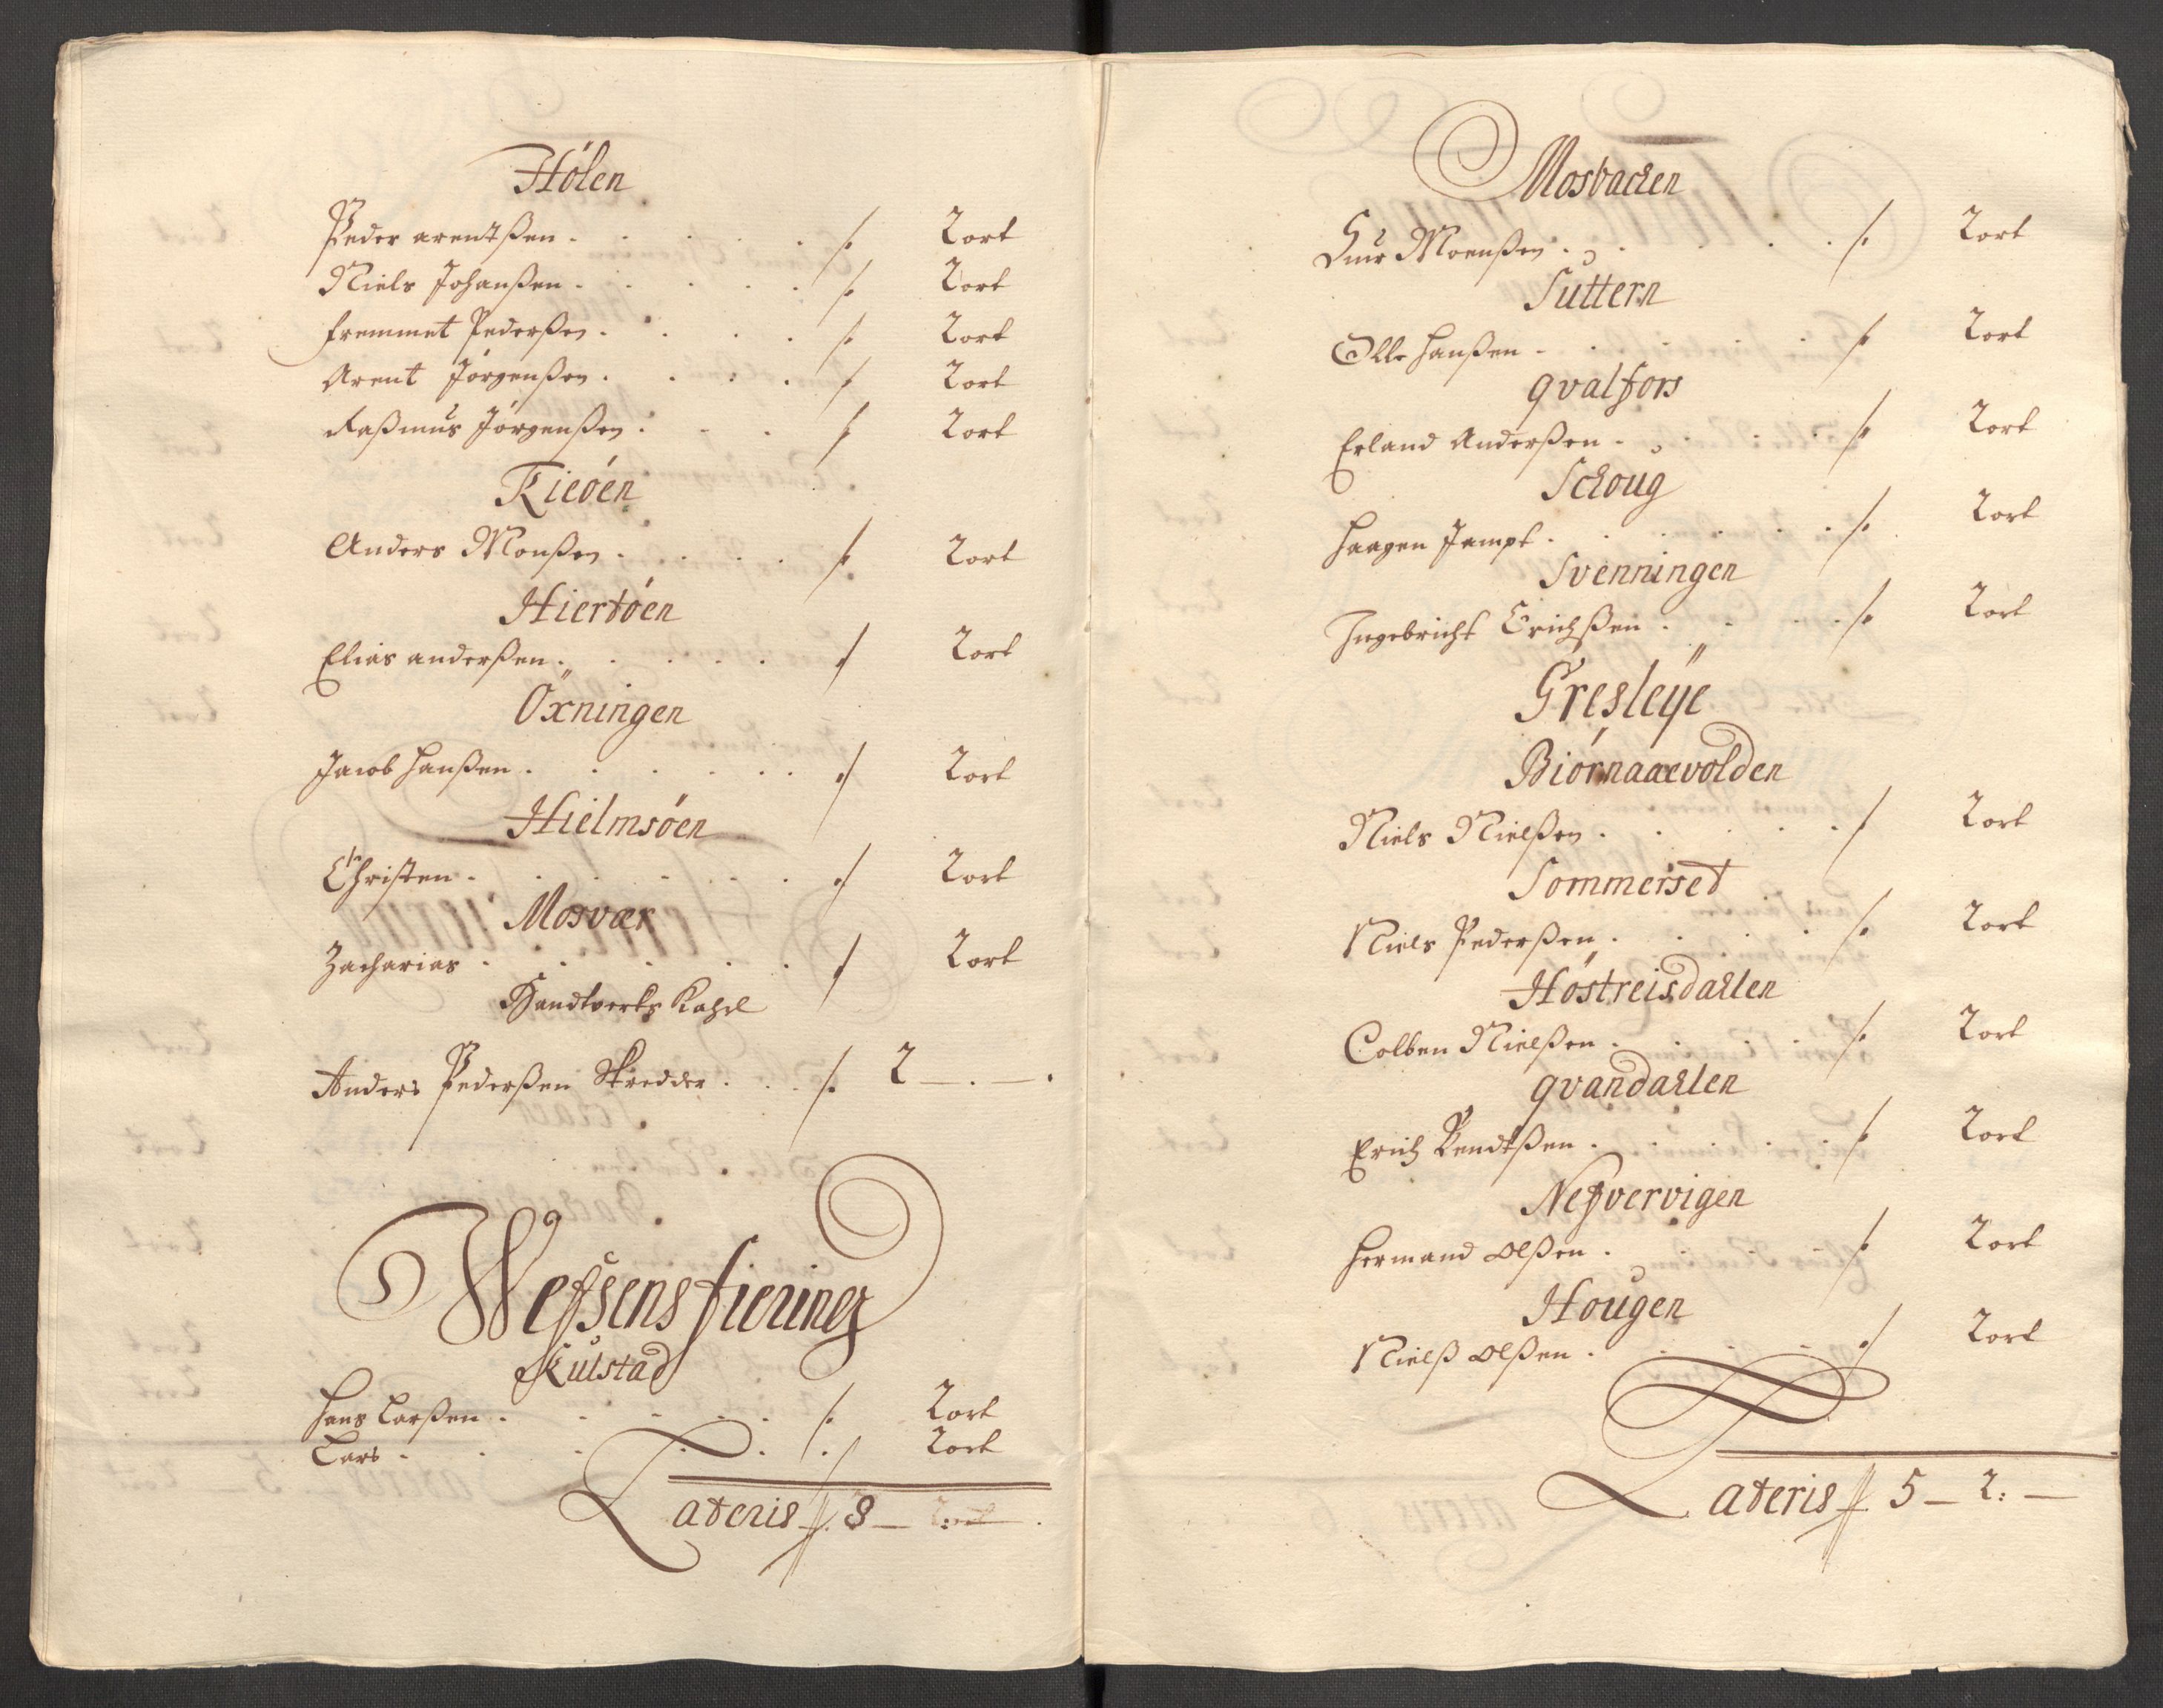 Hölen
Peder arentßen . . . . . /. 2 ort
Niels Johanßen . . . . . /. 2 ort
fremmet Pederßen . . . . /. 2 ort
Arent Jörgenßen . . . . / 2 ort
Raßmus Jörgenßen . . . / 2 ort
Rieöen
Anders Monßen . . . . /. 2 ort
Hiertöen
Elias anderßen . . . . . / 2 ort
Öxningen
Jacob Hanßen . . . . . . / 2 ort
Hielmsöen
Christen . . . . . . / 2 ort
Mosvær
Zacharias . . . . . / 2 ort
Handtverks Karle
Anders Pederßen Skredder . . . /. 2 — . — .
Wefsens fiering
Kulstad
Hans Larßen . . . . . /. 2 ort
Lars . . . . . /. 2 ort
Lateris /. 8 — 2: — .
Mosbacken
Siur Monßen . . . . /. 2 ort
Suttern
Olle Hanßen . . . . . / 2 ort
qvalfors
Erland Anderßen . . . . . / 2 ort
Schoug
Haagen Jempt . . . . . . /. 2 ort
Svenningen
Ingebricht Erichßen . . . . /. 2 ort
Gresleÿe
Biörnaaevolden
Niels Nielßen . . . . . / 2 ort
Sommerset
Niels Pederßen . . . . /. 2 ort
Höstreisdallen
Colben Nielßen . . . . . /. 2 ort
qvandallen
Erich Bendtßen . . . . . /. 2 ort
Nefvervigen
Hermand olßen . . . . /. 2 ort
Hougen
Nielß olßen . . . . / 2 ort
Lateris 5 — 2: —